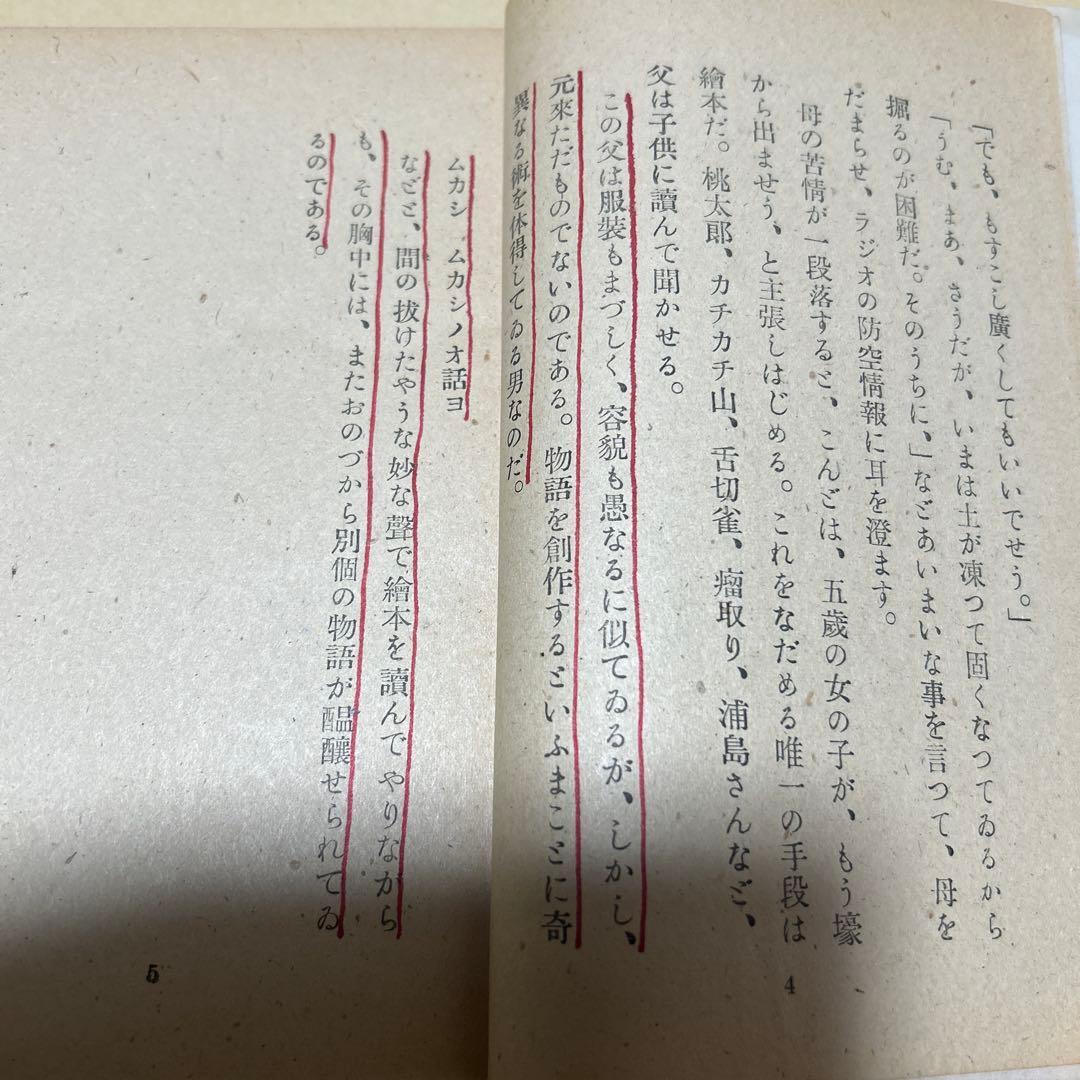 「でも、もすこし廣くしてもいいでせう。」
「うむ、まあ、さうだが、いまは土が凍つて固くなつてゐるから
掘るのが困難だ。そのうちに、」などあいまいな事を言つて、母を
だまらせ、ラジオの防空情報に耳を澄ます。
母の苦情が一段落すると、こんどは、五歳の女の子が、もう壕
から出ませう、と主張しはじめる。これをなだめる唯一の手段は
繪本だ。桃太郎、カチカチ山、舌切雀、瘤取り、浦島さんなど、
父は子供に讀んで聞かせる。
この父は服裝もまづしく、容貌も愚なるに似てゐるが、しかし、
元來ただものでないのである。物語を創作するといふまことに奇
異なる術を体得してゐる男なのだ。
4
ムカシ ムカシノオ話ヨ
などと、間の拔けたやうな妙な聲で繪本を讀んでやりながら
も、その胸中には、またおのづから別個の物語が醞釀せられてゐ
るのである。
5